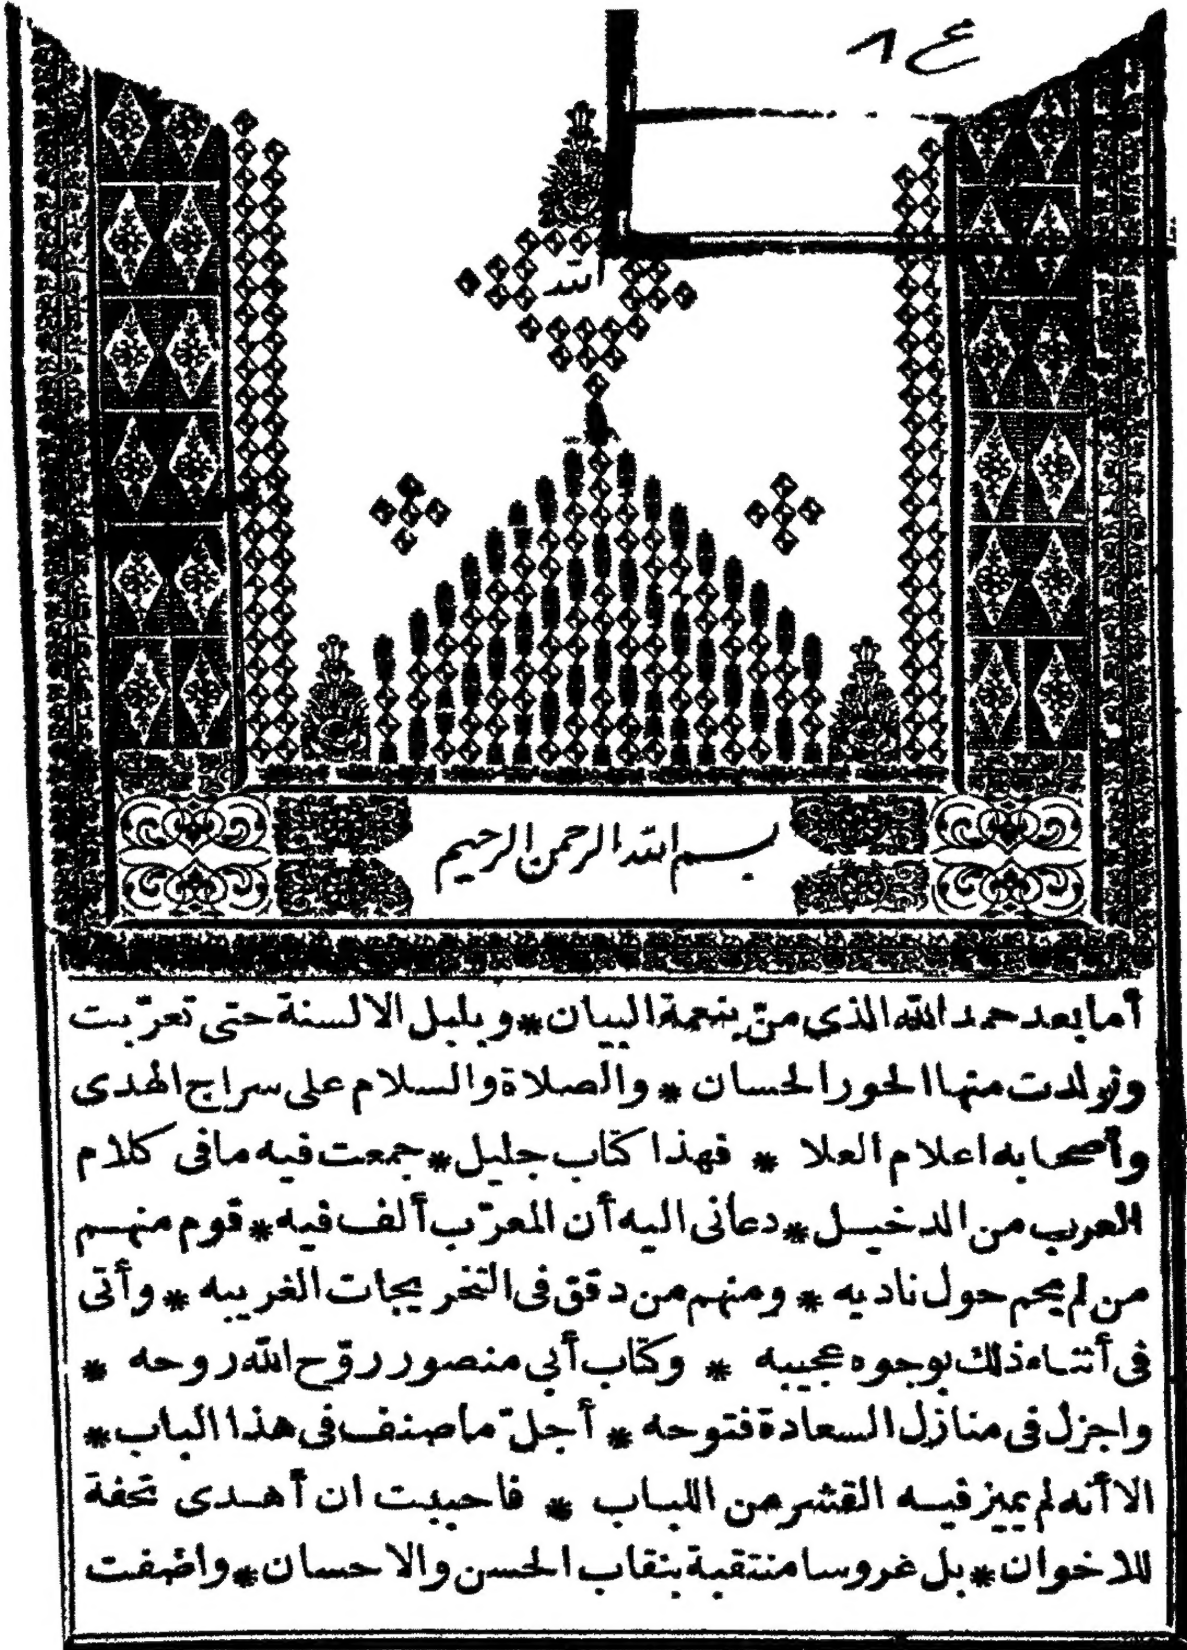 ع ٨
الله
بسم الله الرحمن الرحيم
أما بعد حمد الله الذى منّ بنعمة البيان * وبلبل الالسنة حتى تعرّبت
وتولدت منها الحور الحسان * والصلاة والسلام على سراج الهدى
وأصحابه اعلام العلا * فهذا كتاب جليل * جمعت فيه ما فى كلام
العرب من الدخيل * دعانى اليه أن المعرّب ألف فيه * قوم منهم
من لم يحم حول ناديه * ومنهم من دقق فى التخريجات الغريبه * وأتى
فى أثناء ذلك بوجوه عجيبه * وكتاب أبي منصور روّح الله روحه *
واجزل فى منازل السعادة فتوحه * أجلّ ما صنف فى هذا الباب *
الا أنه لم يميز فيه القشر من اللباب * فاحببت ان أهدى تحفة
للاخوان * بل غروسا منتقبة بنقاب الحسن والاحسان * واضفت